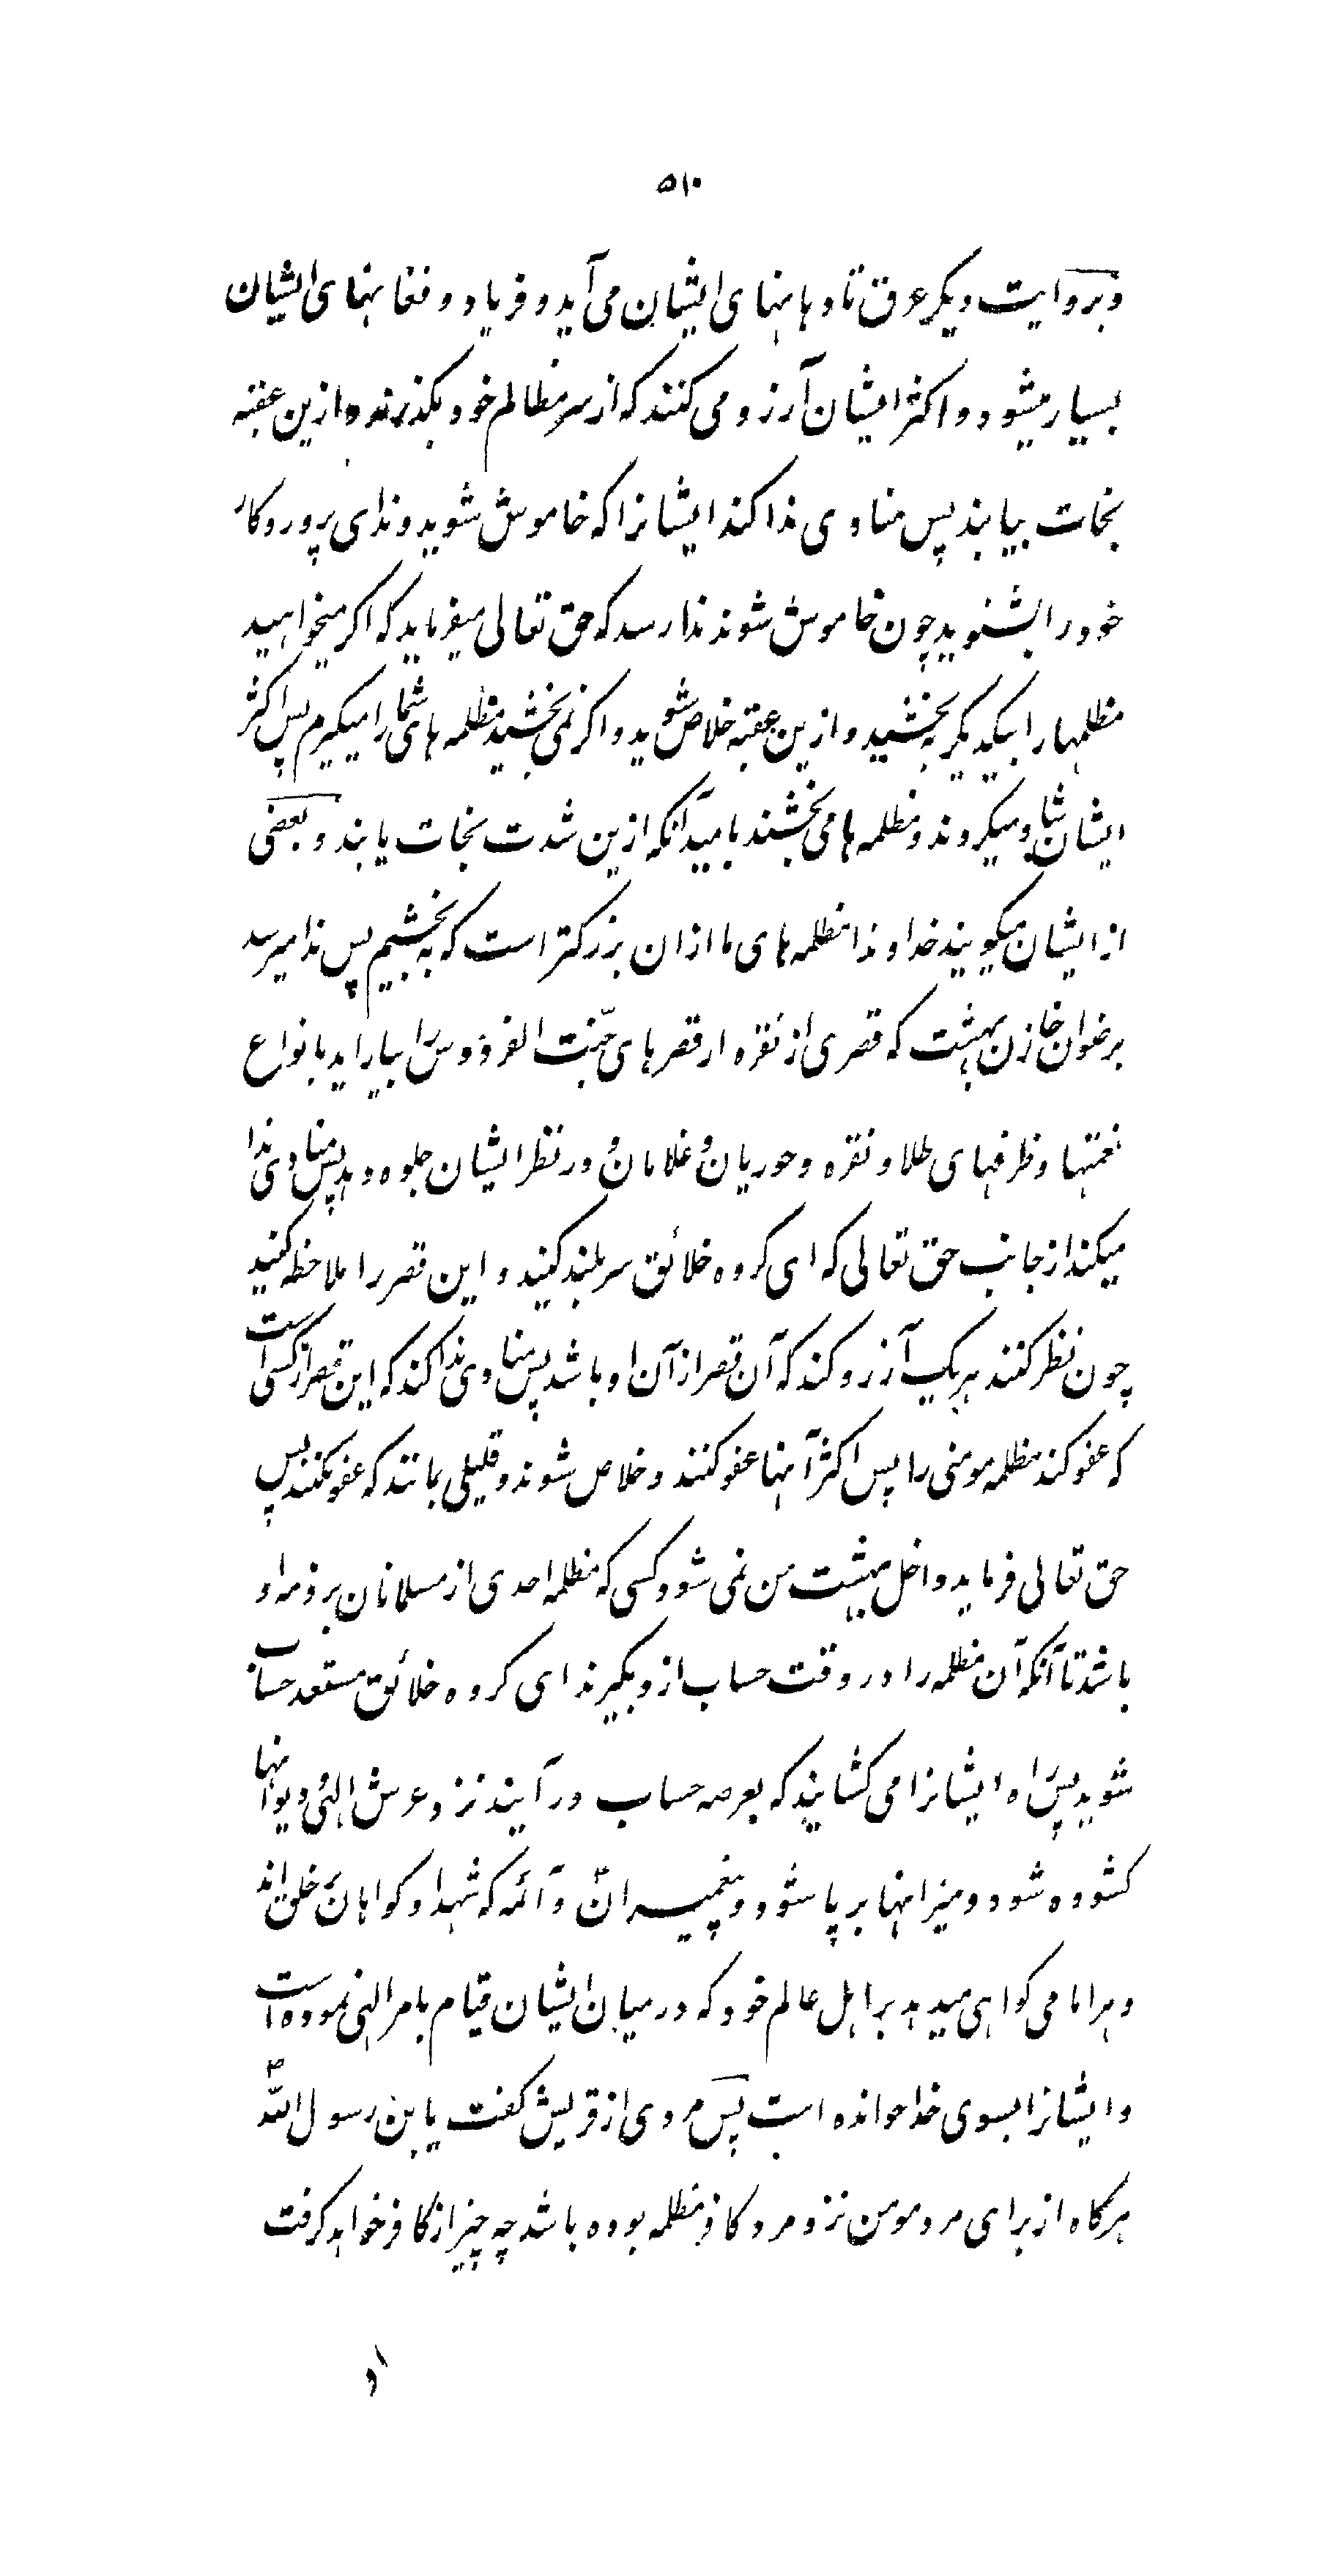 ۵۱۰
و بروایت دیکر عرق تا دهانهای ایشان می آید و فریاد و فغانهای ایشان
بسیار میشود و اکثر ایشان آرزو می کنند که از سر مظالم خود بکذرند و ازین عقبه
نجات بیابند پس منادی ندا کند ایشانرا که خاموش شوید و ندای پروردکار
خود را بشنوید چون خاموش شوند ندا رسد که حق تعالی میفرماید که اکر میخواهید
مظلمها را بیکدیکر به بخشید و ازین عقبه خلاص شوید و اکر نمی بخشید مظلمه های شما را میکیرم پس اکثر
ایشان شاد میکردند و مظلمه ها می بخشند بامید آنکه ازین شدت نجات یابند و بعضی
از ایشان میکویند خداوندا مظلمه های ما ازان بزرکتر است که به بخشیم پس ندا میرسد
برضوان خازن بهشت که قصری از نقره از قصرهای جنّت الفردوس را بیاراید بانواع
نعمتها و ظرفهای طلا و نقره و حوریان و غلامان و در نظر ایشان جلوه دهد پس منادی ندا
میکند از جانب حق تعالی که ای کروه خلائق سر بلند کنید و این قصر را ملاحظه کنید
چون نظر کنند هر یک آرزو کند که آن قصر از آن او باشد پس منادی ندا کند که این قصر از کسی است
که عفو کند مظلمه مومنی را پس اکثر آنها عفو کنند و خلاص شوند و قلیلی بمانند که عفو نکنند پس
حق تعالی فرماید داخل بهشت من نمی شود کسی که مظلمه احدی از مسلمانان بر ذمه او
باشد تا آنکه آن مظلمه را در وقت حساب ازو بکیرند ای کروه خلائق مستعد حساب
شوید پس راه ایشانرا می کشایند که بعرصه حساب در آیند نزد عرش الهی و دیوانها
کشوده شود و میزانها بر پا شود و پیغمبران و آئمه که شهدا و کواهان بر خلق اند
و هر امامی کواهی میدهد بر اهل عالم خود که در میان ایشان قیام بامر الهی نموده است
و ایشانرا بسوی خدا خوانده است پس مردی از قریش کفت یا بن رسول اللّه
هرکاه از برای مرد مومن نزد مرد کافر مظلمه بوده باشد چه چیز از کافر خواهد کرفت
او